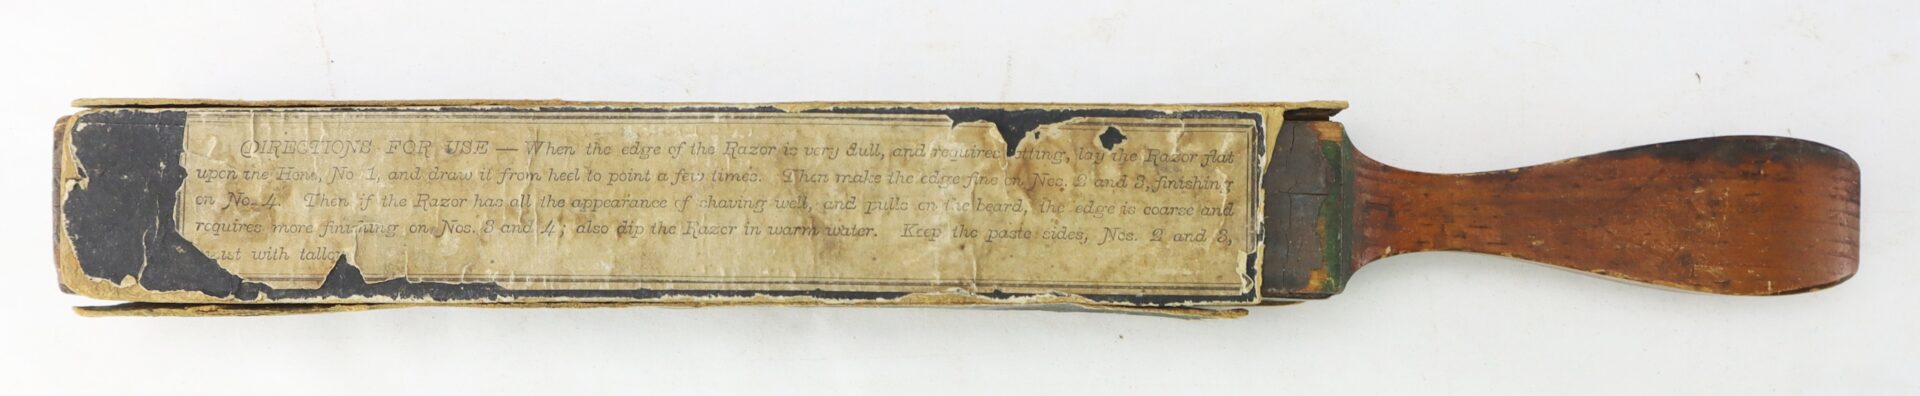 DIRECTIONS FOR USE — When the edge of the Razor is very dull, and requires tting, lay the Razor flat
upon the Hone, No. 1, and draw it from heel to point a few times. Then make the edge fine on Nos. 2 and 3, finishing
on No. 4. Then if the Razor has all the appearance of shaving well, and pulls on the beard, the edge is coarse and
requires more finishing on Nos. 3 and 4; also dip the Razor in warm water. Keep the paste sides, Nos. 2 and 3,
with